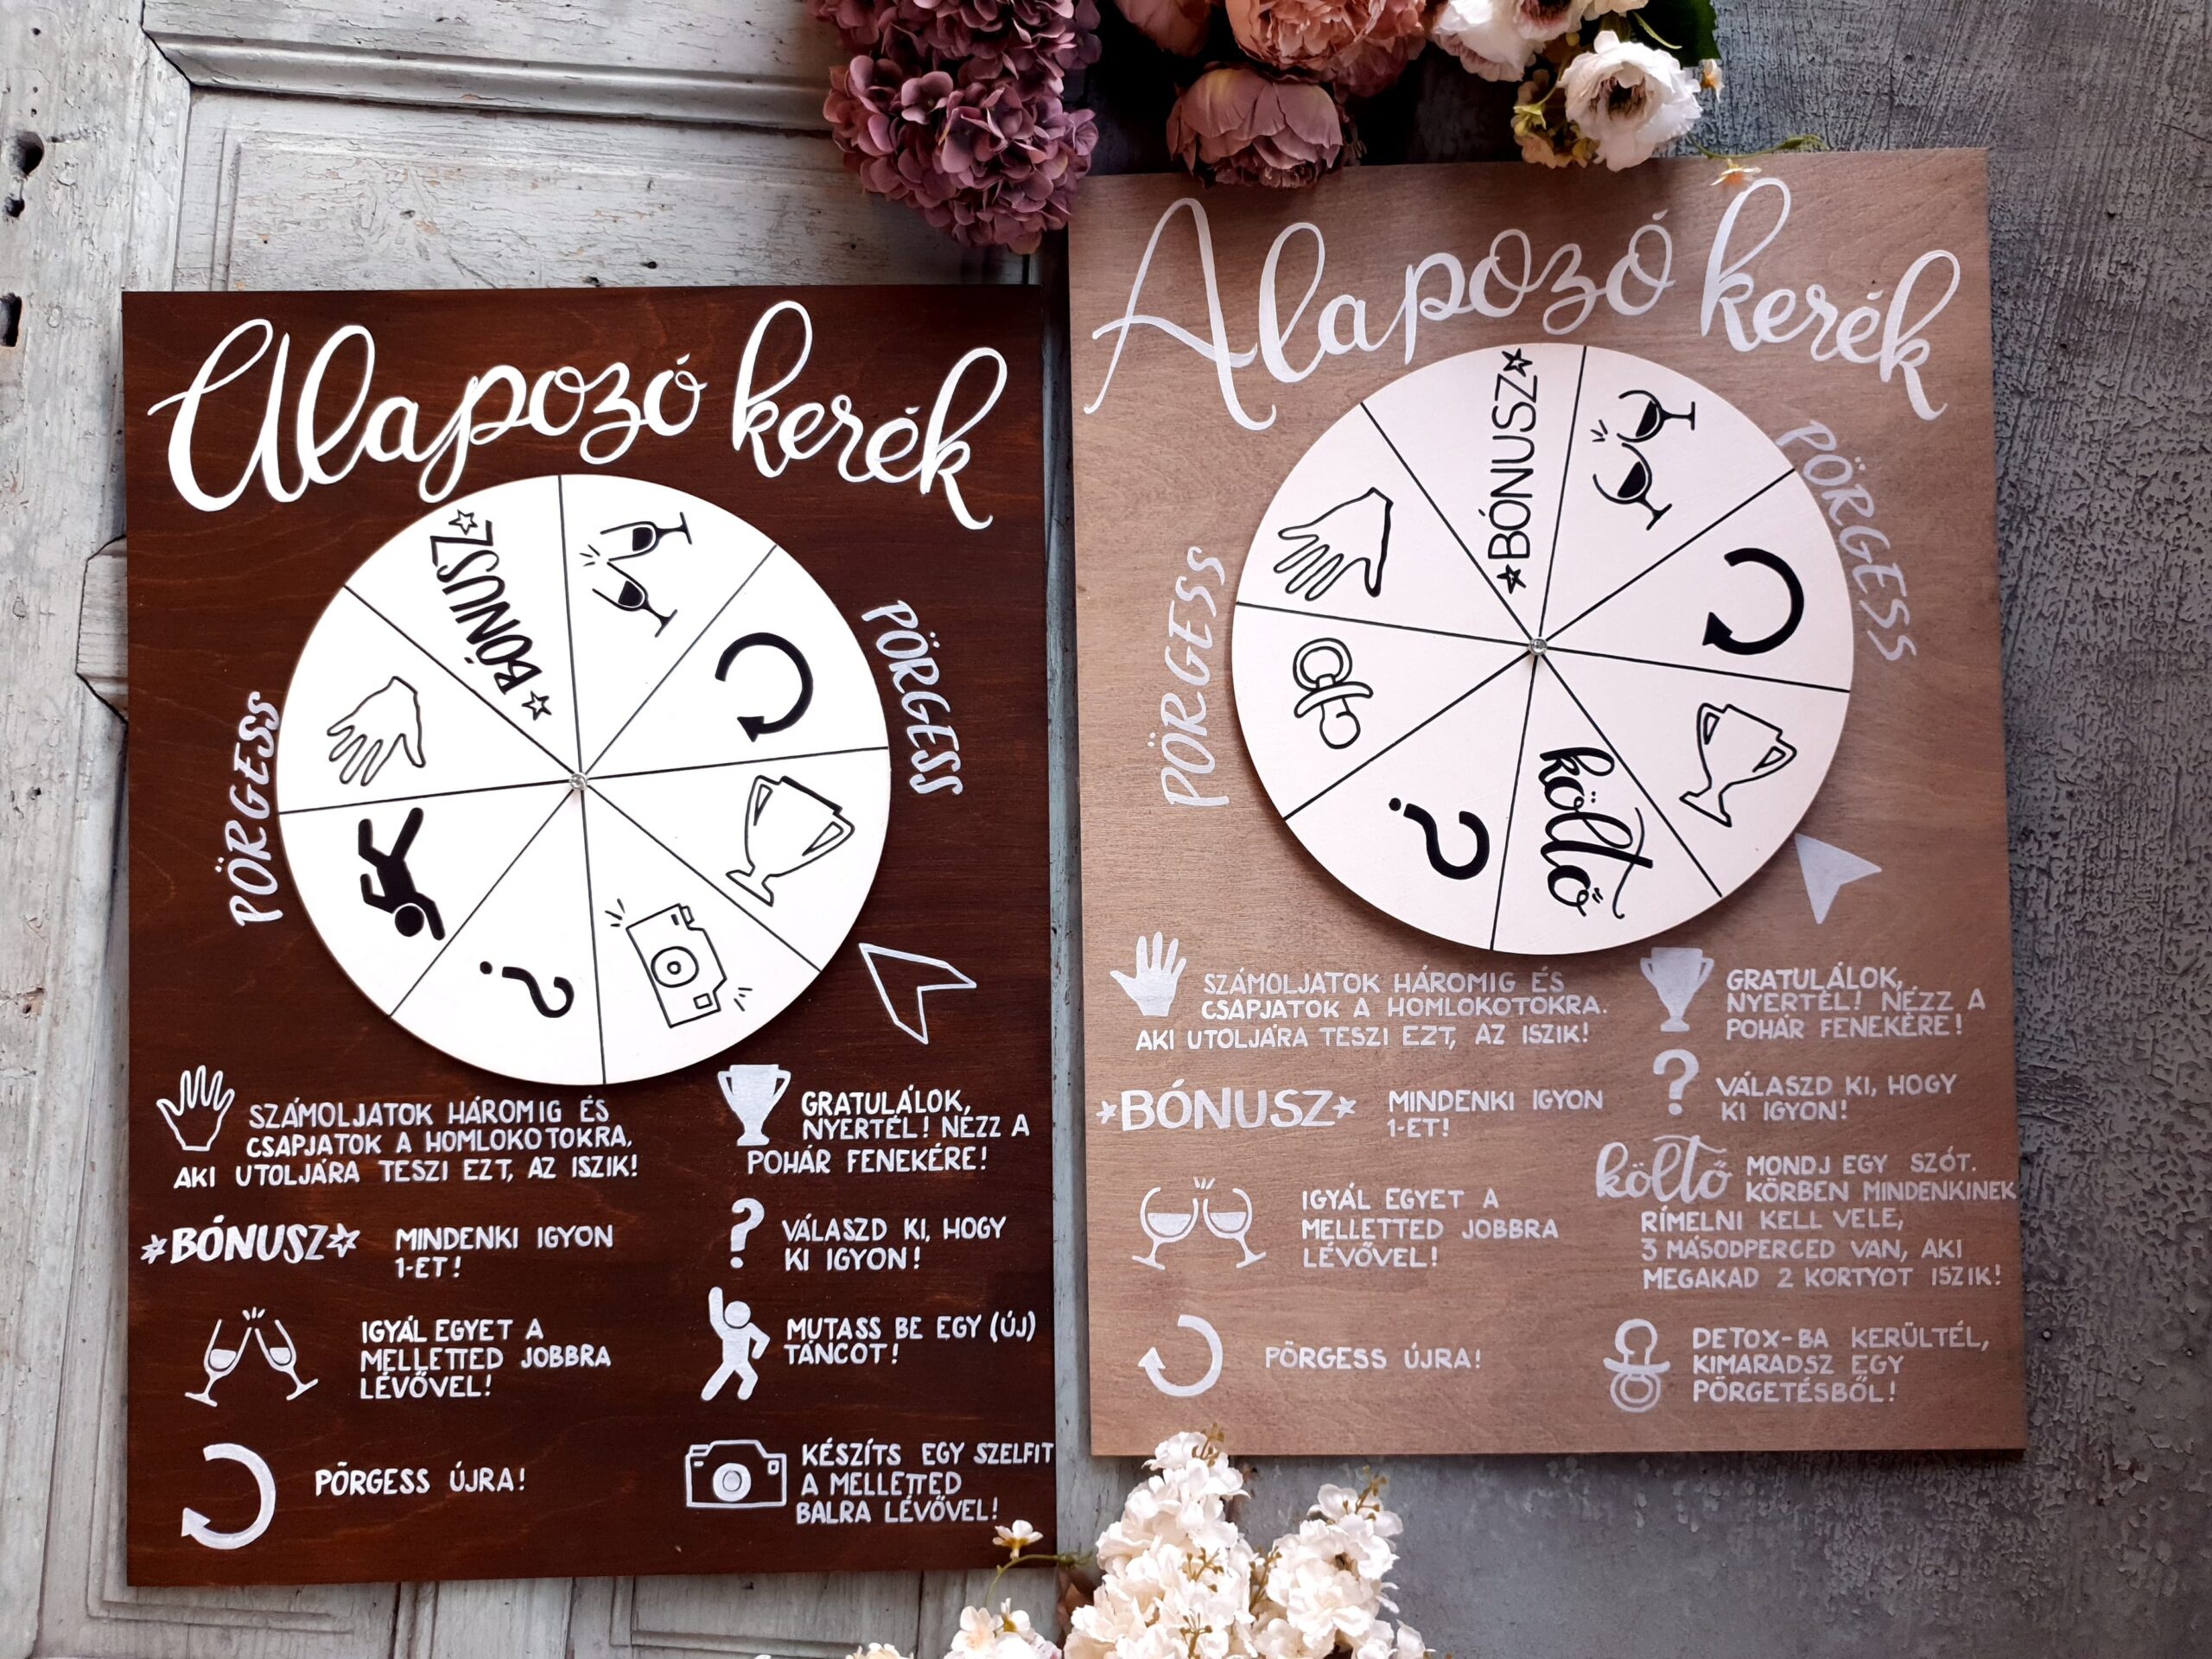 Alapozó kerék
PÖRGESS
PÖRGESS
☆BÓNUSZ☆
?
SZÁMOLJATOK HÁROMIG ÉS
CSAPJATOK A HOMLOKOTOKRA,
AKI UTOLJÁRA TESZI EZT, AZ ISZIK!
☆BÓNUSZ☆ MINDENKI IGYON
1-ET!
IGYÁL EGYET A
MELLETTED JOBBRA
LÉVŐVEL!
PÖRGESS ÚJRA!
GRATULÁLOK,
NYERTÉL! NÉZZ A
POHÁR FENEKÉRE!
? VÁLASZD KI, HOGY
KI IGYON!
MUTASS BE EGY (ÚJ)
TÁNCOT!
KÉSZÍTS EGY SZELFIT
A MELLETTED
BALRA LÉVŐVEL!
Alapozó kerék
PÖRGESS
PÖRGESS
☆BÓNUSZ☆
költő
?
SZÁMOLJATOK HÁROMIG ÉS
CSAPJATOK A HOMLOKOTOKRA.
AKI UTOLJÁRA TESZI EZT, AZ ISZIK!
☆BÓNUSZ☆ MINDENKI IGYON
1-ET!
IGYÁL EGYET A
MELLETTED JOBBRA
LÉVŐVEL!
PÖRGESS ÚJRA!
GRATULÁLOK,
NYERTÉL! NÉZZ A
POHÁR FENEKÉRE!
? VÁLASZD KI, HOGY
KI IGYON!
költő MONDJ EGY SZÓT.
KÖRBEN MINDENKINEK
RÍMELNI KELL VELE,
3 MÁSODPERCED VAN, AKI
MEGAKAD 2 KORTYOT ISZIK!
DETOX-BA KERÜLTÉL,
KIMARADSZ EGY
PÖRGETÉSBŐL!